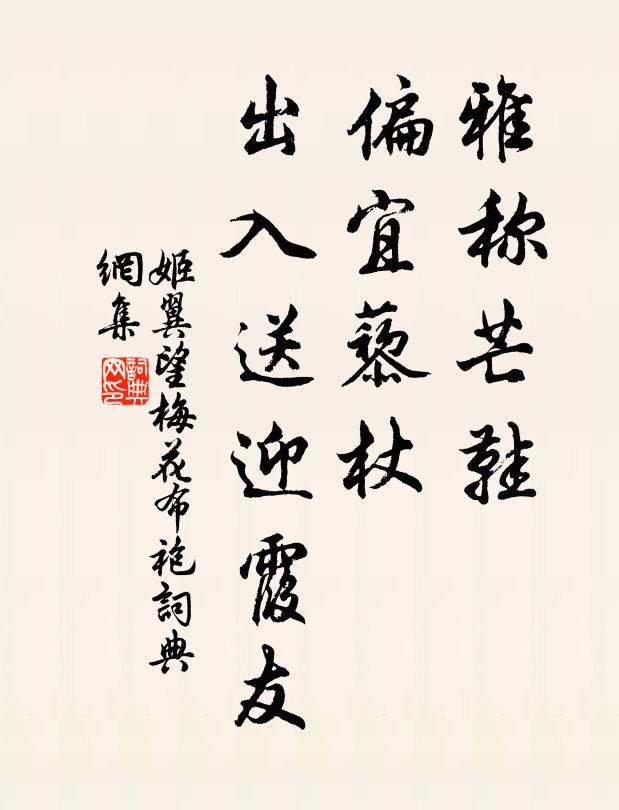 雅称芒鞋
偏宜藜杖
出入送迎霞友
姬翼望梅花布袍詞典
網集
詞典網印